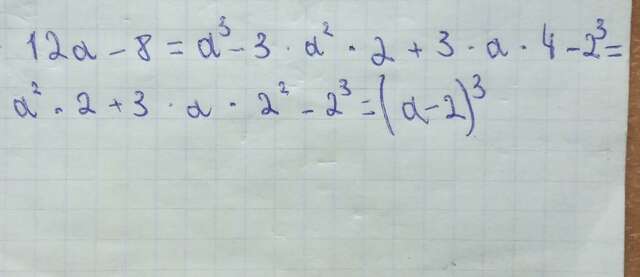 12a - 8 = a³ - 3 · a² · 2 + 3 · a · 4 - 2³ =
a² · 2 + 3 · a · 2² - 2³ = (a - 2)³